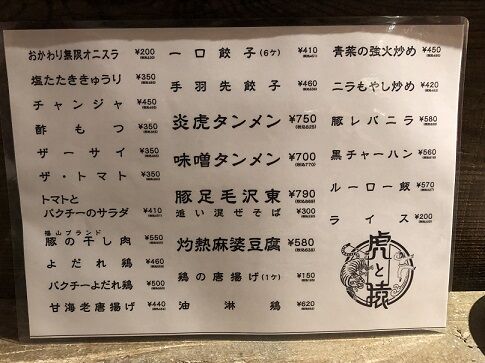 おかわり無限オニスラ ¥200
塩たたききゅうり ¥350
チャンジャ ¥450
酢もつ ¥350
ザーサイ ¥350
ザ・トマト ¥350
トマトと
パクチーのサラダ ¥410
福山ブランド
豚の干し肉 ¥550
よだれ鶏 ¥460
パクチーよだれ鶏 ¥500
甘海老唐揚げ ¥440
一口餃子(6ケ) ¥410
手羽先餃子 ¥460
炎虎タンメン ¥750
味噌タンメン ¥700
豚足毛沢東 ¥790
追い混ぜそば ¥300
灼熱麻婆豆腐 ¥580
鶏の唐揚げ(1ケ) ¥150
油淋鶏 ¥620
青菜の強火炒め ¥450
ニラもやし炒め ¥420
豚レバニラ ¥580
黒チャーハン ¥560
ルーロー飯 ¥570
ライス ¥200
虎と猿